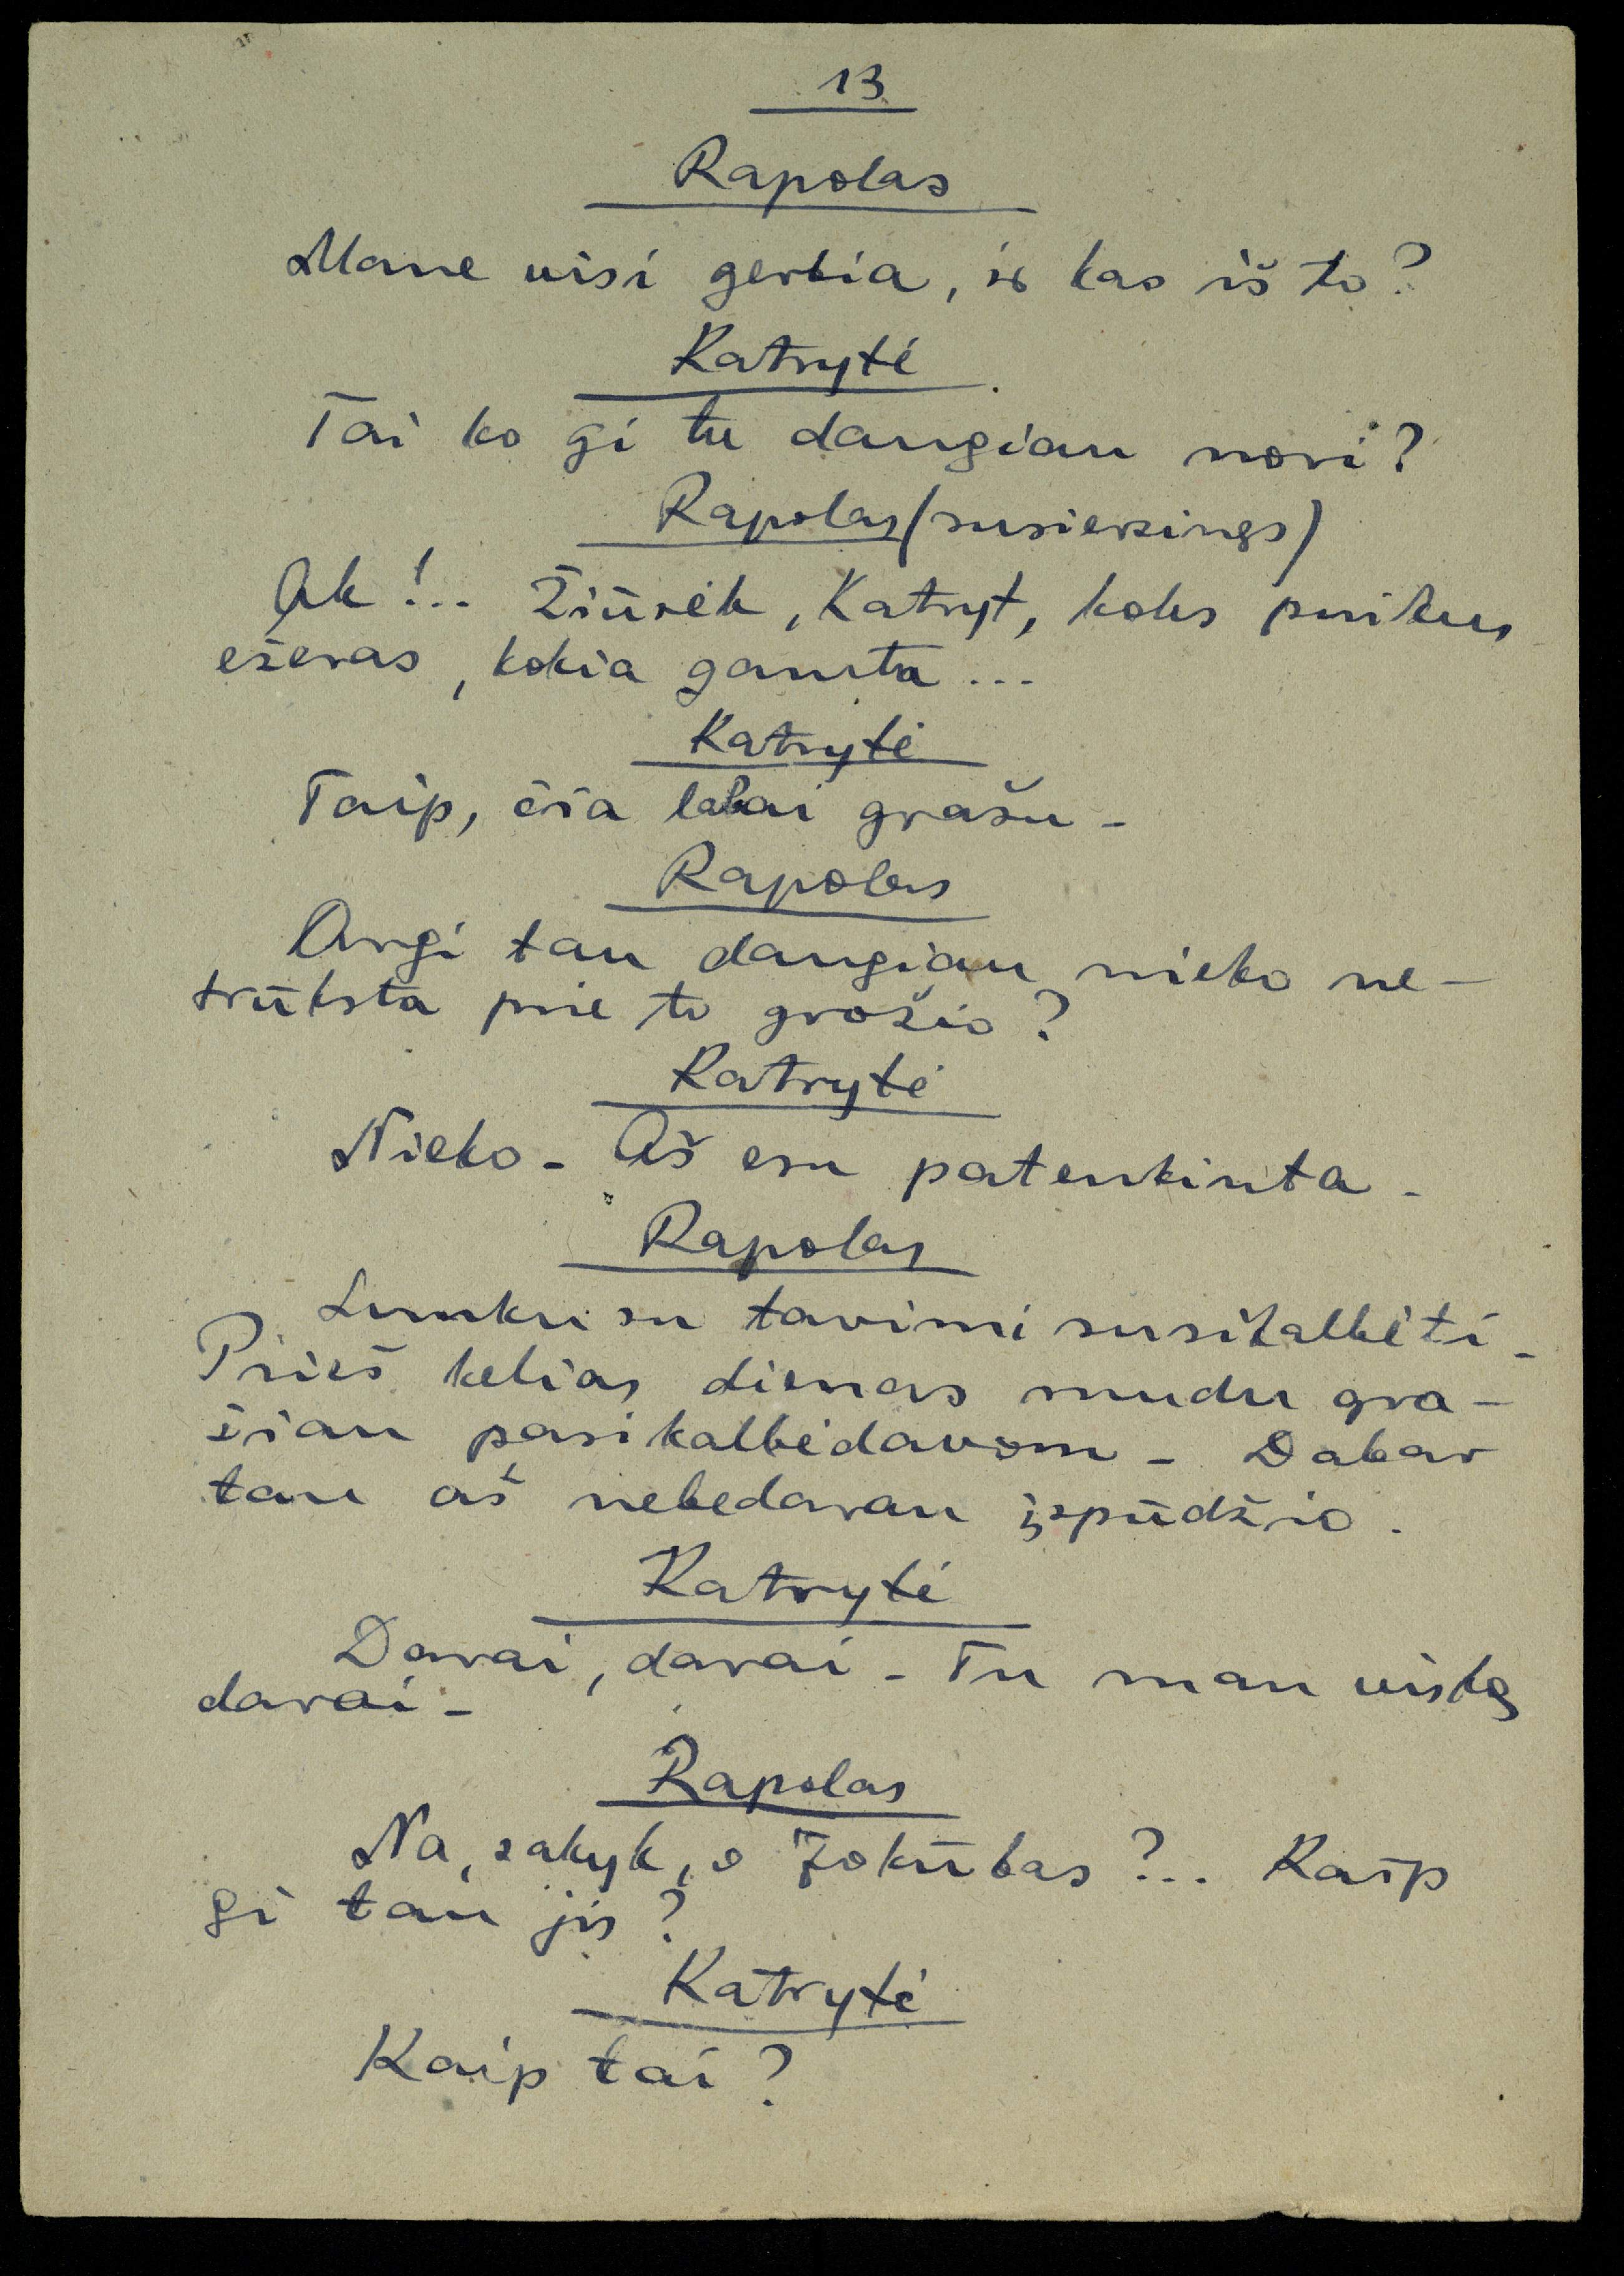 13
Rapolas
Mane visi gerbia, ir kas iš to?
Katrytė
Tai ko gi tu daugiau nori?
Rapolas (susierzinęs)
Ak!.. Žiūrėk, Katryt, koks puikus
ežeras, kokia gamta...
Katrytė
Taip, čia labai gražu.
Rapolas
Argi tau daugiau nieko ne-
trūksta prie to grožio?
Katrytė
Nieko. Aš esu patenkinta.
Rapolas
Sunku su tavimi susikalbėti.
Prieš kelias dienas mudu gra-
žiau pasikalbėdavom. Dabar
tau aš nebedarau įspūdžio.
Katrytė
Darai, darai. Tu man viską
darai.
Rapolas
Na, sakyk, o Jokūbas?.. Kaip
gi tau jis?
Katrytė
Kaip tai?